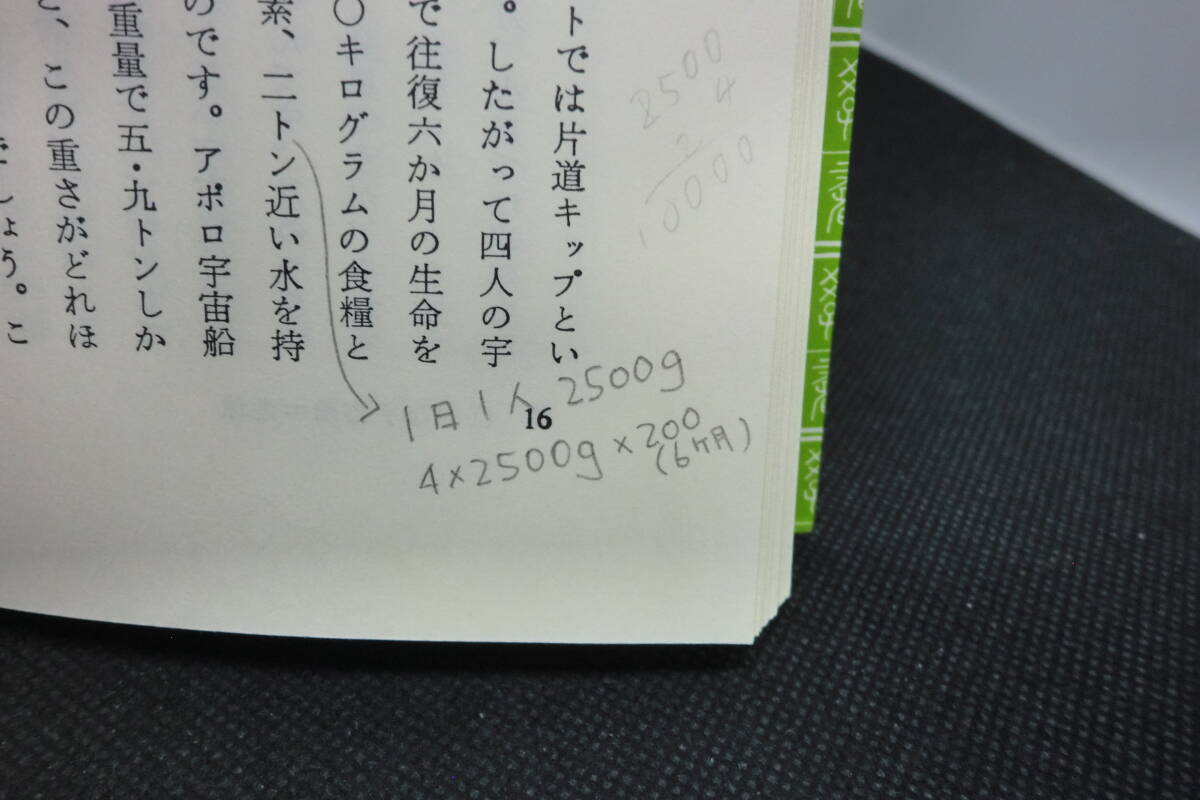 トでは片道キップとい
。したがって四人の宇
で往復六か月の生命を
〇キログラムの食糧と
素、二トン近い水を持
のです。アポロ宇宙船
重量で五・九トンしか
、この重さがどれほ
でしょう。こ
2500
4
2
10000
1日1人 2500g
4×2500g×200
(6ヶ月)
16